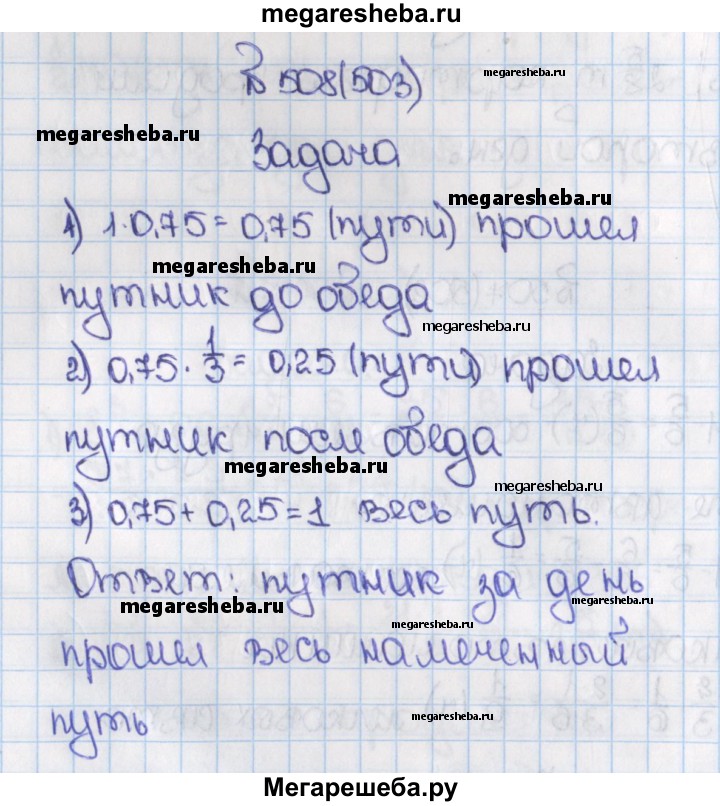 megaresheba.ru
№ 508(503)
megaresheba.ru
megaresheba.ru
Задача
megaresheba.ru
1) 1·0,75 = 0,75 (пути) прошел
megaresheba.ru
путник до обеда
megaresheba.ru
2) 0,75 · 1/3 = 0,25 (пути) прошел
путник после обеда
megaresheba.ru
megaresheba.ru
3) 0,75 + 0,25 = 1 весь путь.
Ответ: путник за день
megaresheba.ru
megaresheba.ru
megaresheba.ru
прошел весь намеченный
путь
megaresheba.ru
Мегарешеба.ру